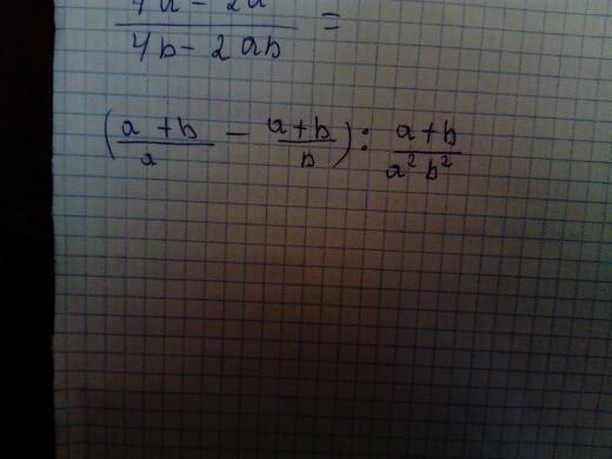 4a - 2a
4b - 2ab =
(a + b / a - a + b / b) : a + b / a² b²